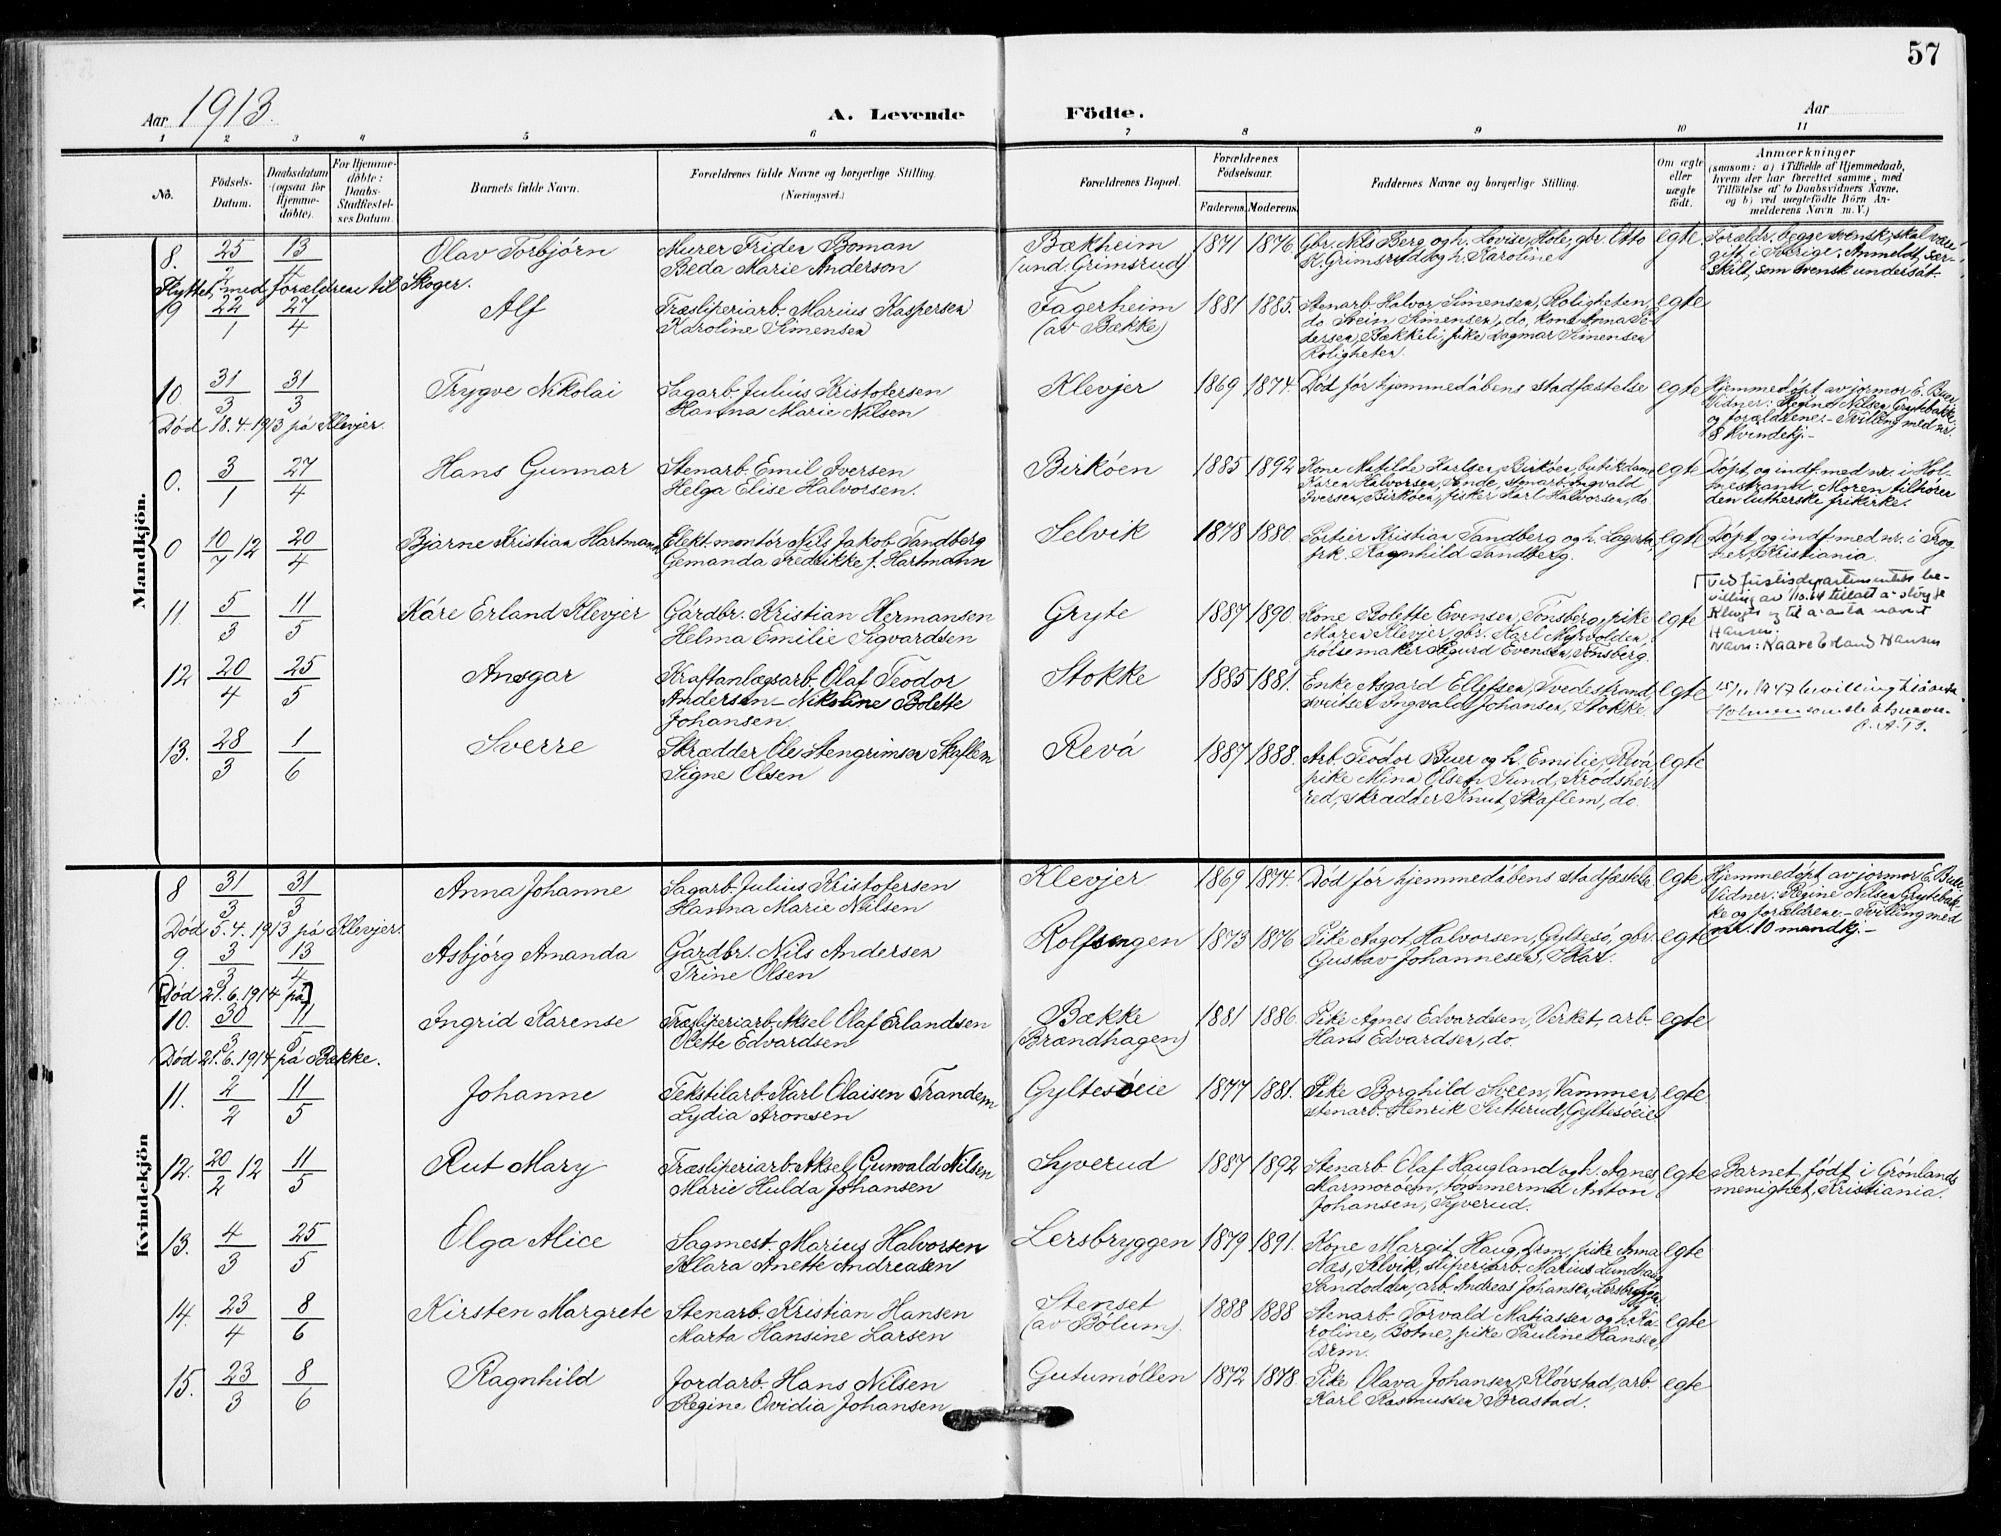 57
Aar 1913.
A. Levende Födte.
Aar
1 2 3 4 5 6 7 8 9 10 11
No.
Födsels-Datum.
Daabsdatum (ogsaa for Hjemmedöbte).
For Hjemmedöbte: Daabs-Stadfæstelses Datum.
Barnets fulde Navn.
Forældrenes fulde Navne og borgerlige Stilling.
(Næringsvei.)
Forældrenes Bopæl.
Forældrenes Födselsaar.
Faderens. Moderens.
Faddernes Navne og borgerlige Stilling.
Om ægte eller uægte födt.
Anmærkninger
(saasom: a) i Tilfælde af Hjemmedaab,
hvem der har forrettet samme, med
Tilföielse af to Daabsvidners Navne,
og b) ved uægtefödte Börn Anmelderens Navn m. V.)
Mandkjön.
8. 25/2 13/4 Olav Torbjörn
Murer Friden Boman
Beda Marie Anderson
Bækheim
(und. Grimsrud)
1871 1876
Gbr. Nels Berg og h. Lovise, Hole, gbr. Otto
K. Grimsrud og h. Karoline
egte
Forældr. begge svensk, skal være
gift i Sverige. Anmeldt særskilt, som svensk undersåt.
Flyttet med forældrene til Skoger.
9 22/1 27/4 Alf
Træsliperiarb. Marius Kaspersen
Karoline Simensen
Fagerheim
(av Bække)
1881 1885.
Stenarb. Halvor Simensen, Roligheten,
do Svein Simensen, do, kone Anna Pedersen, Bækkeli, pike Dagmar Simensen
Roligheten.
egte
10. 31/3 31/3 Trygve Nikolai
Sagarb. Julius Kristofersen
Hanna Marie Nilsen
Klevjer
1869 1874.
Död för hjemmedåbens stadfæstelse
egte
Hjemmedöpt av jormor E. Buer.
Vidner: Regine Nilsen Grytebakke
og forældrene. – Tvilling med nr.
8 kvindekj. –
Död 18.4.1913 på Klevjer.
0. 3/1 27/4 Hans Gunnar
Stenarb. Emil Iversen
Helga Elise Halvorsen.
Birköen
1885 1892
Kone Matilde Karlsen, Birköen, butikdame
Karen Halvorsen, Ende, stenarb. Ingvald
Iversen, Birköen, fisker Karl Halvorsen, do.
egte
Döpt og indf. med nr. i Holmestrand. Moren tilhörer
den lutherske frikirke.
0 10/7 12 20/4 Bjarne Kristian Hartmann
Elekt. montör Nils Jakob Tandberg
Gemanda Fredrikke f. Hartmann
Selvik
1878 1880.
Portier Kristian Tandberg og h. Lagerta,
frk. Ragnhild Tandberg.
egte
Döpt og indf. med nr. i Frogner, Kristiania.
11. 5/3 11/5 Kåre Erland Klevjer
Gårdbr. Kristian Hermansen
Helma Emilie Sigvardsen
Gryte
1887 1890.
Kone Bolette Evensen, Tönsberg, pike
Maren Klevjer, gbr. Karl Myrvolden,
pölsemaker Sigurd Evensen, Tönsberg.
egte
Ved Justisdepartementets bevilling av tillatt a sløyfe
Klevjer og til a anta navnet
Hansen.
Navn: Kaare Erland Hansen
12 20/4 25/5 Ansgar
Kraftanlægsarb. Olaf Teodor
Andersen – Nikoline Bolette
Johansen.
Stokke
1885 1881.
Enke Asgard Ellefsen, Tvedestrand,
Ingvald Johansen, Stokke.
egte
1947 bevilling til å anta
Holmen som slektsnavn.
13. 28/3 1/6 Sverre
Skrædder Ole Stengrimsen Skaflem
Signe Olsen
Revå
1887 1888.
Arb. Teodor Buer og h. Emilie, Revå,
pike Mina Olsen Sund, Krödsherred, skrædder Knut Skaflem, do.
egte
Kvindekjön
8 31/3 31/3 Anna Johanne
Sagarb. Julius Kristofersen
Hanna Marie Nilsen
Klevjer
1869 1874.
Död för hjemmedåbens stadfæstelse
egte
Hjemmedöpt av jormor E. Buer.
Vidner: Regine Nilsen Grytebakke og forældrene. – Tvilling med
nr. 10 mandkj. –
Död 5.4.1913 på Klevjer.
9. 3/3 13/4 Asbjörg Amanda
Gårdbr. Nils Andersen
Trine Olsen
Rolfsengen
1873 1876
Pike Aagot Halvorsen, Gyltesö, gbr.
Gustav Johannesen, Skar.
egte
[Död 21.6.1914 på]
10. 30/3 11/5 Ingrid Karense
Træsliperiarb. Aksel Olaf Erlandsen
Olette Edvardsen
Bække
(Brændhagen)
1881 1886.
Pike Agnes Edvardsen, Verket, arb.
Hans Edvardsen, do.
egte
Död 21.6.1914 på Bække.
11. 2/2 11/5 Johanne
Tekstilarb. Karl Olaisen Trandem
Lydia Aronsen
Gyltesöeie
1877 1881.
Pike Borghild Sveen, Vammen,
stenarb. Henrik Sutterud, Gyltesöeie
egte
12. 20/2 12 11/5 Rut Mary
Træsliperiarb. Aksel Gunvald Nilsen
Marie Hulda Johansen
Syverud
1887 1892
Stenarb. Olaf Haugland og h. Agnes
Marmoröen, tömmermd Anton
Johansen, Syverud.
egte
Barnet födt i Grönlands
menighet, Kristiania.
13. 4/3 25/5 Olga Alice
Sagmest. Marius Halvorsen
Klara Anette Andreasen
Lersbryggen
1879 1891.
Kone Margit Haug, Drm, pike Anna
Næs, Selvik, sliperiarb. Marius Lundhaug
Sandodden, arb. Andreas Johansen, Lersbryggen.
egte
14. 23/4 8/6 Kirsten Margrete
Stenarb. Kristian Hansen
Marta Hansine Larsen
Stenset
(av Bölum).
1888 1888
Stenarb. Torvald Matiassen og h. Karoline, Botne, pike Pauline Hansen,
Drm.
egte
15. 23/3 8/6 Ragnhild
Jordarb. Hans Nilsen
Regine Ovidia Johansen
Gutumöllen
1872 1878.
Pike Olava Johansen, Klövstad, arb.
Karl Rasmussen Brastad.
egte